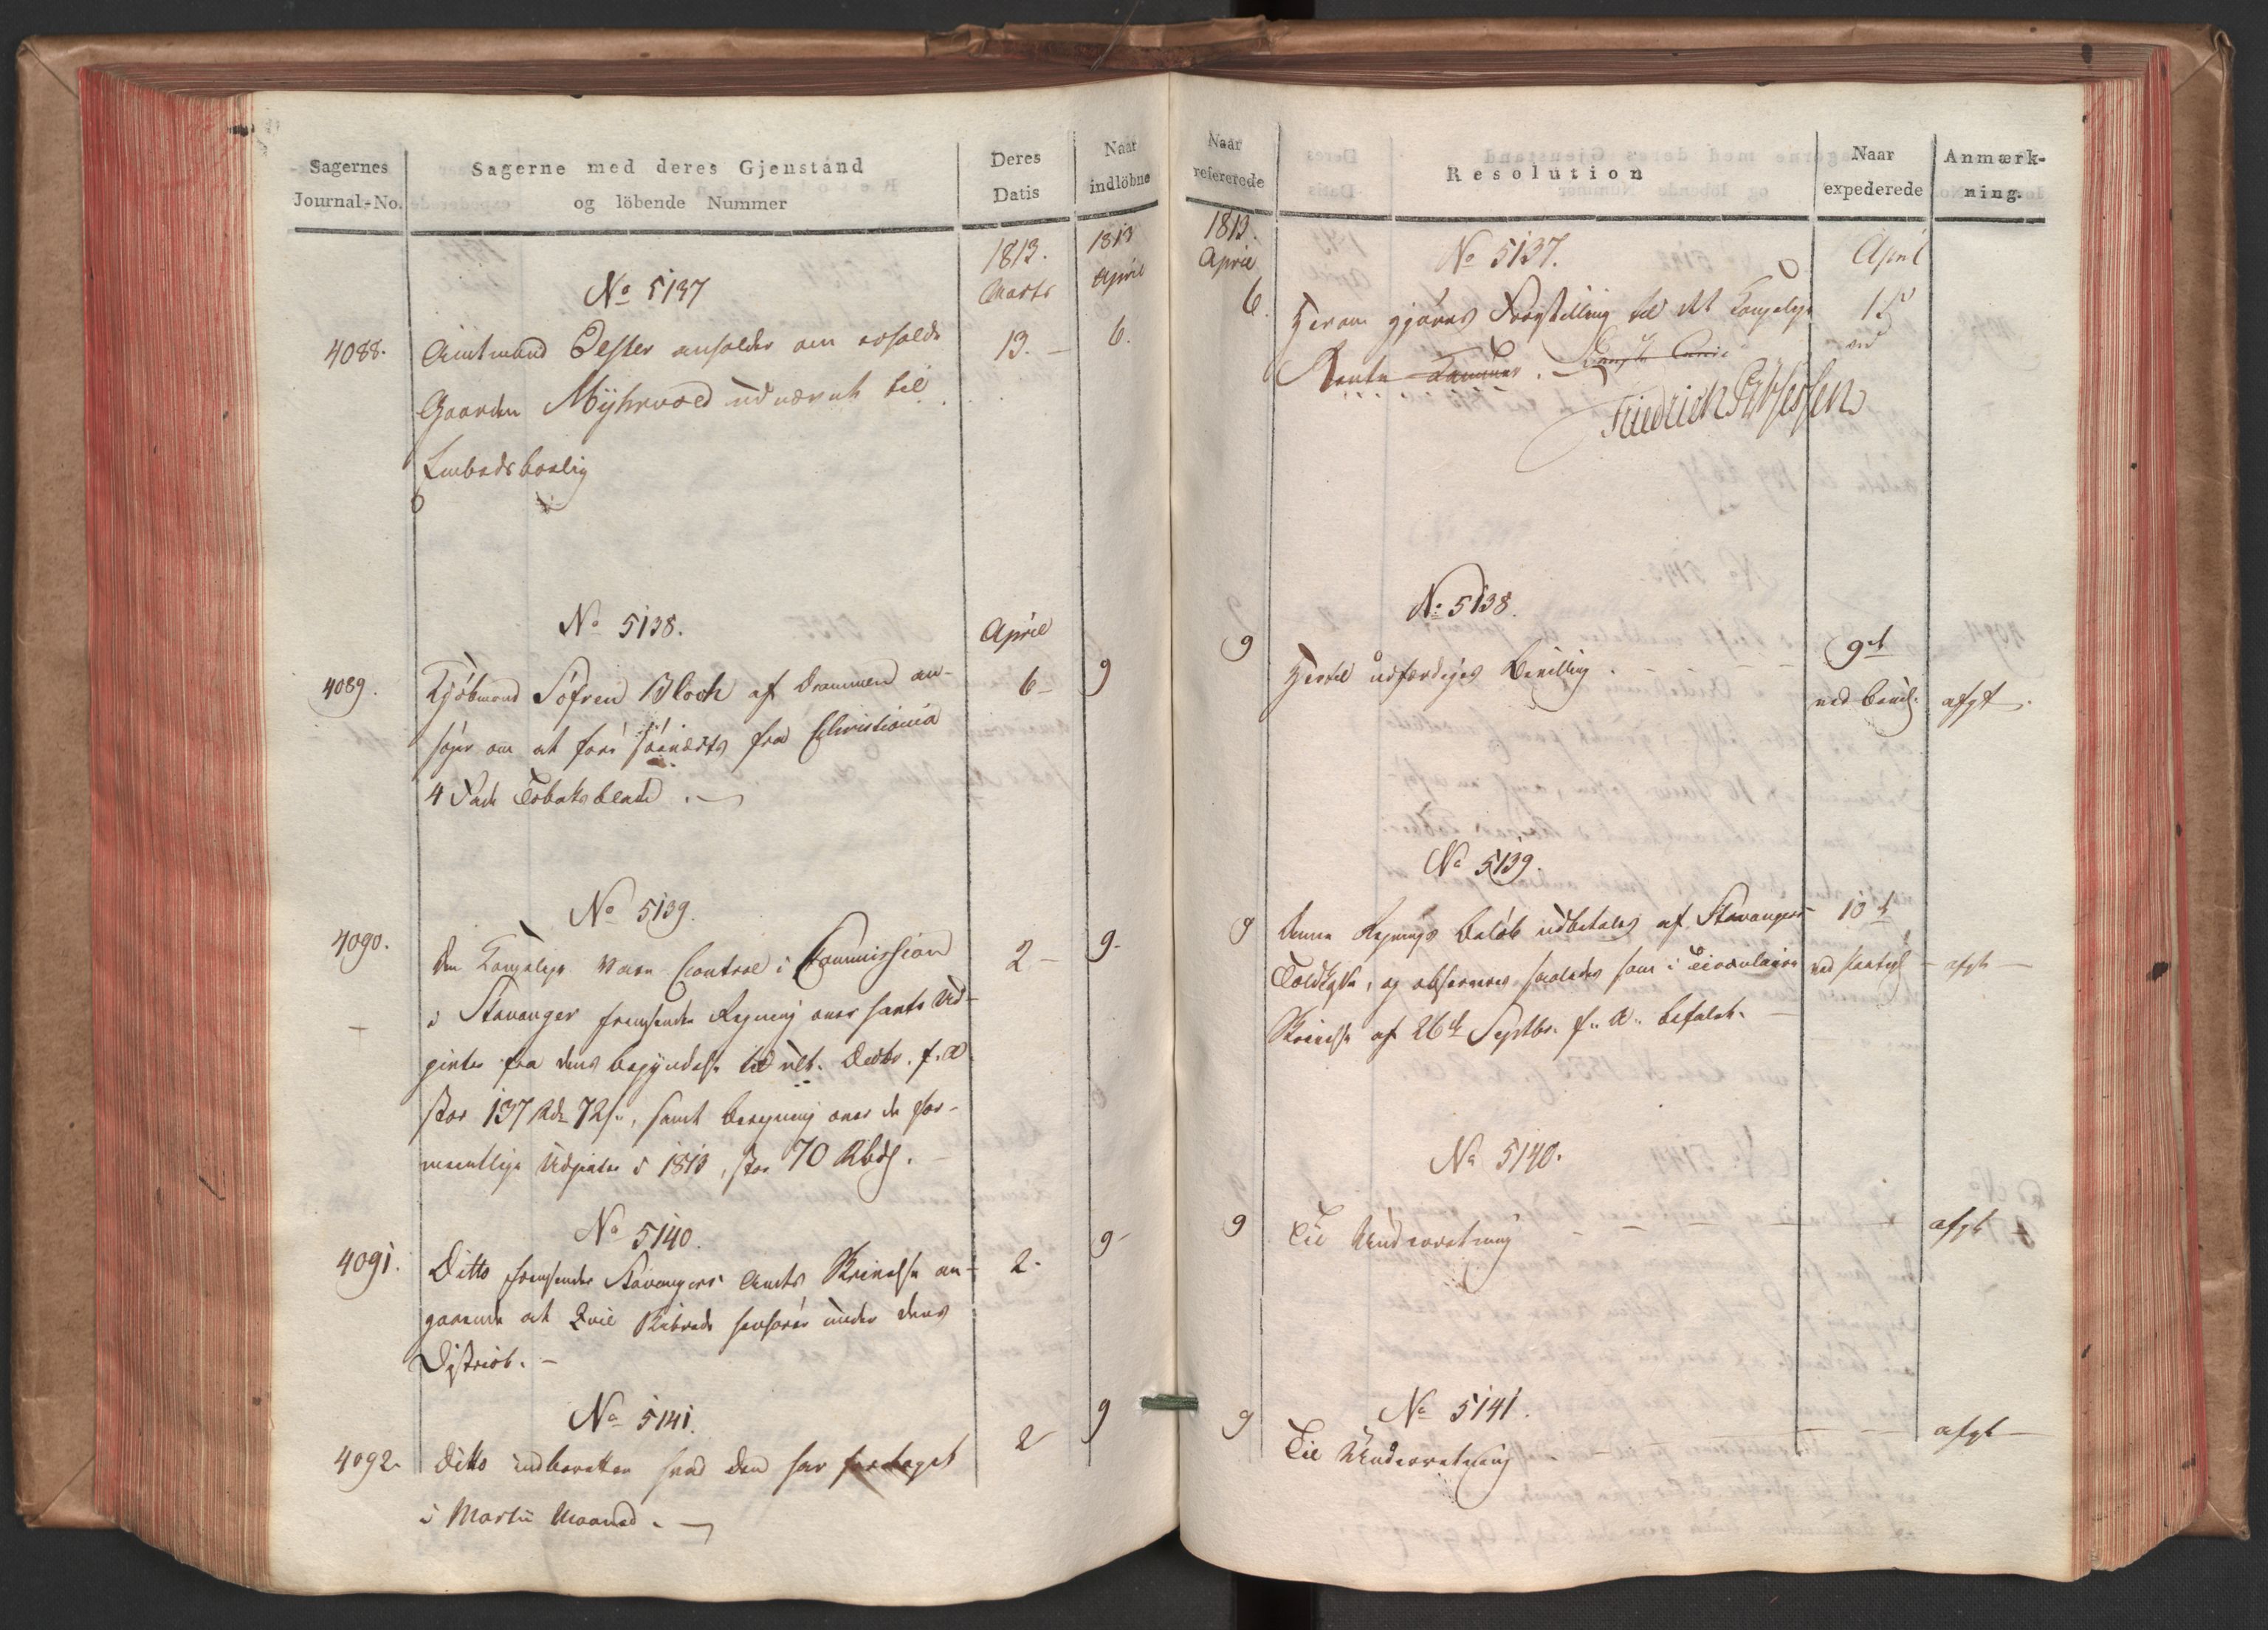 Sagernes
Journal-No.
Sagerne med deres Gjenstand
og löbende Nummer
Deres
Datis
Naar
indlöbne
1813.
Marts
1813
April
No 5137
4088.
Amtmand Oester anholder om at faae
Gaarden Myhrvold udnævnt til
Embedsboelig
13. –
6.
No 5138.
April
4089.
Kjöbmand Söfren Bloch af Drammen an-
söger om at före söeværts fra Christiania
4 Pack Tobaksblade. –
6 –
9
No 5139.
4090.
Den Kongelige Vare Controle i Commission
i Stavanger fremsender Regning over hafte Ud-
givter fra dens begyndelse til ult. Decbr. f. A
stor 137 Rdr 72 s., samt beregning over de for-
meentlige Udgivter i 1813, stor 70 Rbdr.
2 –
9.
No 5140.
4091.
Ditto fremsender Stavangers Amts Skrivelse an-
gaaende at Qvie henhörer under dens
District. –
2.
9 –
No 5141.
4092.
Ditto indberetter hvad den har foretaget
i Martii Maaned. –
2
9
Naar
refererede
Resolution
Naar
expederede
Anmærk-
ning.
1813.
April
April
No 5137.
6.
Herom gjöres Forestilling til det Kongelige
Rente Kammer.
Friedrich Pz Hessen
No 5138.
9
Hertil udfærdiges Bevilling.
9de
ved Bevil.
afgt.
No 5139.
9
Denne Regnings Belöb udbetales af Stavangers
Toldkasse, og observeres saaledes som i Circulaire
Skrivelse af 26de Septbr. f. A. befalet. –
10de
afgt –
No 5140.
9
Til Underretning
afgt –
No 5141.
9
Til Underretning
afgt –